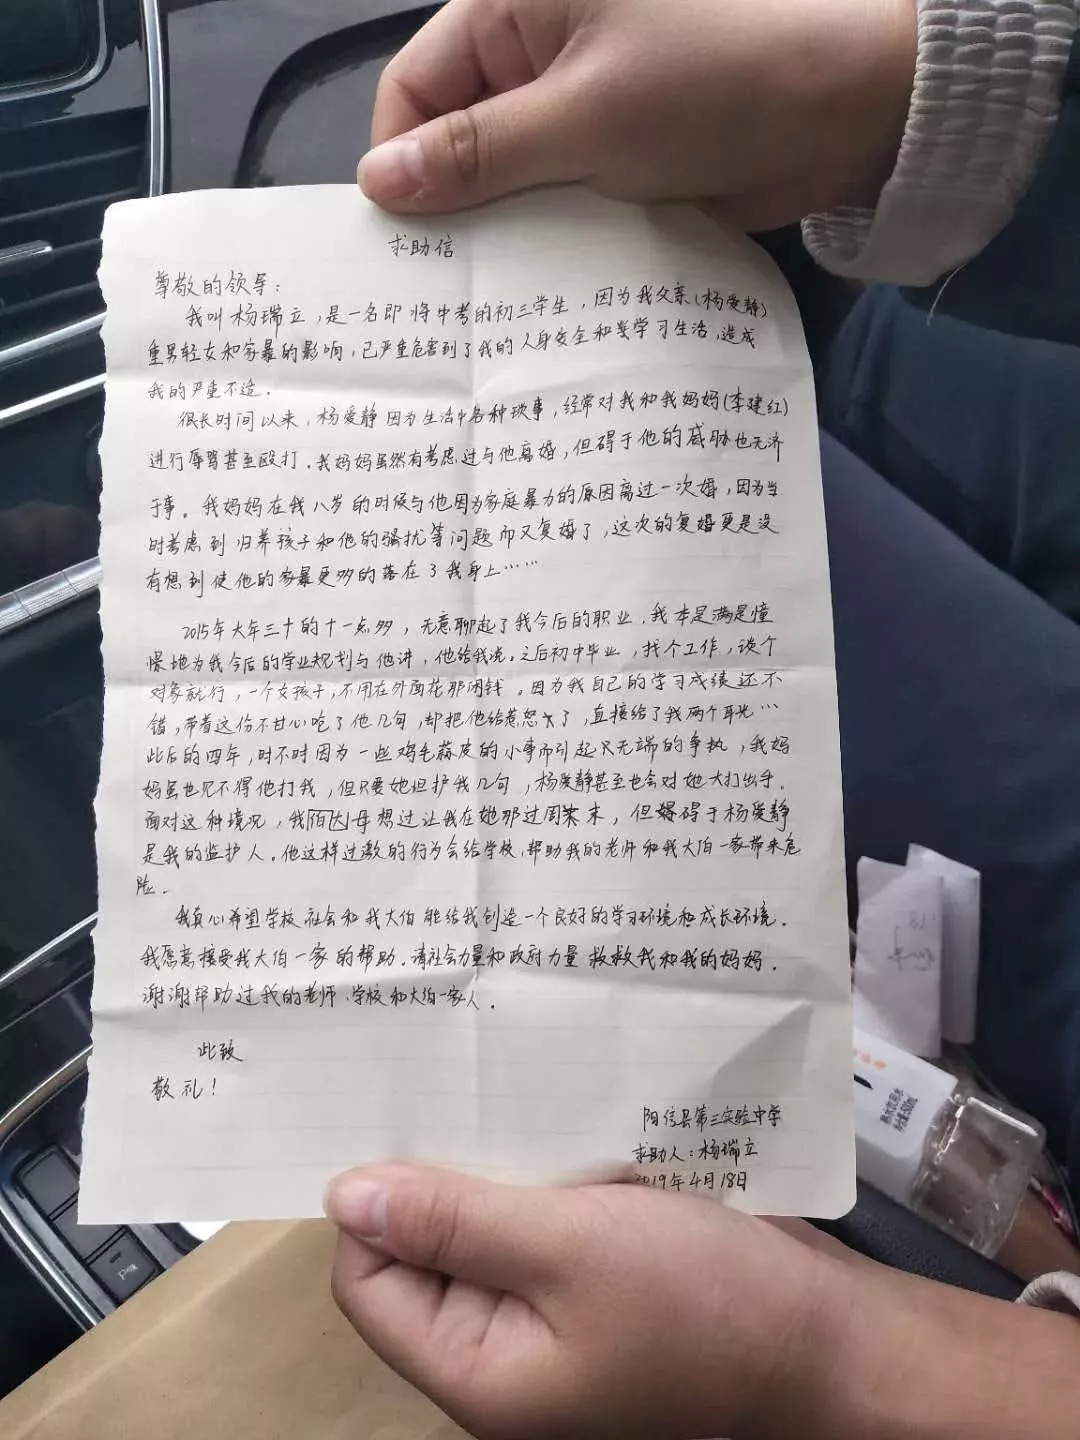 求助信
尊敬的领导：
我叫杨瑞立，是一名即将中考的初三学生，因为我父亲(杨爱静)
重男轻女和家暴的影响，已严重危害到了我的人身安全和学习生活，造成
我的严重不适．
很长时间以来，杨爱静因为生活中各种琐事，经常对我和我妈妈(李建红)
进行辱骂甚至殴打．我妈妈虽然有考虑过与他离婚，但碍于他的威胁也无济
于事。我妈妈在我八岁的时候与他因为家庭暴力的原因离过一次婚，因为当
时考虑到归养孩子和他的骚扰等问题而又复婚了，这次的复婚更是没
有想到使他的家暴更多的落在了我身上……
2015年大年三十的十一点多，无意聊起了我今后的职业．我本是满是憧
憬地为我今后的学业规划与他讲，他给我说．之后初中毕业，找个工作，谈个
对象就行，一个女孩子，不用在外面花那闲钱。因为我自己的学习成绩还不
错，带着这份不甘心吃了他几句，却把他给惹怒了，直接给了我两个耳光…
此后的四年，时不时因为一些鸡毛蒜皮的小事而引起只无端的争执，我妈
妈虽也见不得他打我，但只要她但护我几句，杨爱静甚至也会对她大打出手．
面对这种境况，我陌达母想过让我在她那过周末，但碍于杨爱静
是我的监护人．他这样过激的行为会给学校、帮助我的老师和我大伯一家带来危
险．
我真心希望学校社会和我大伯能给我创造一个良好的学习环境和成长环境．
我愿意接受我大伯一家的帮助．请社会力量和政府力量救救我和我的妈妈．
谢谢帮助过我的老师、学校和大伯一家人．
此致
敬礼！
阳信县第三实验中学
求助人：杨瑞立
2019年4月18日
饮用水
净含量:550mL